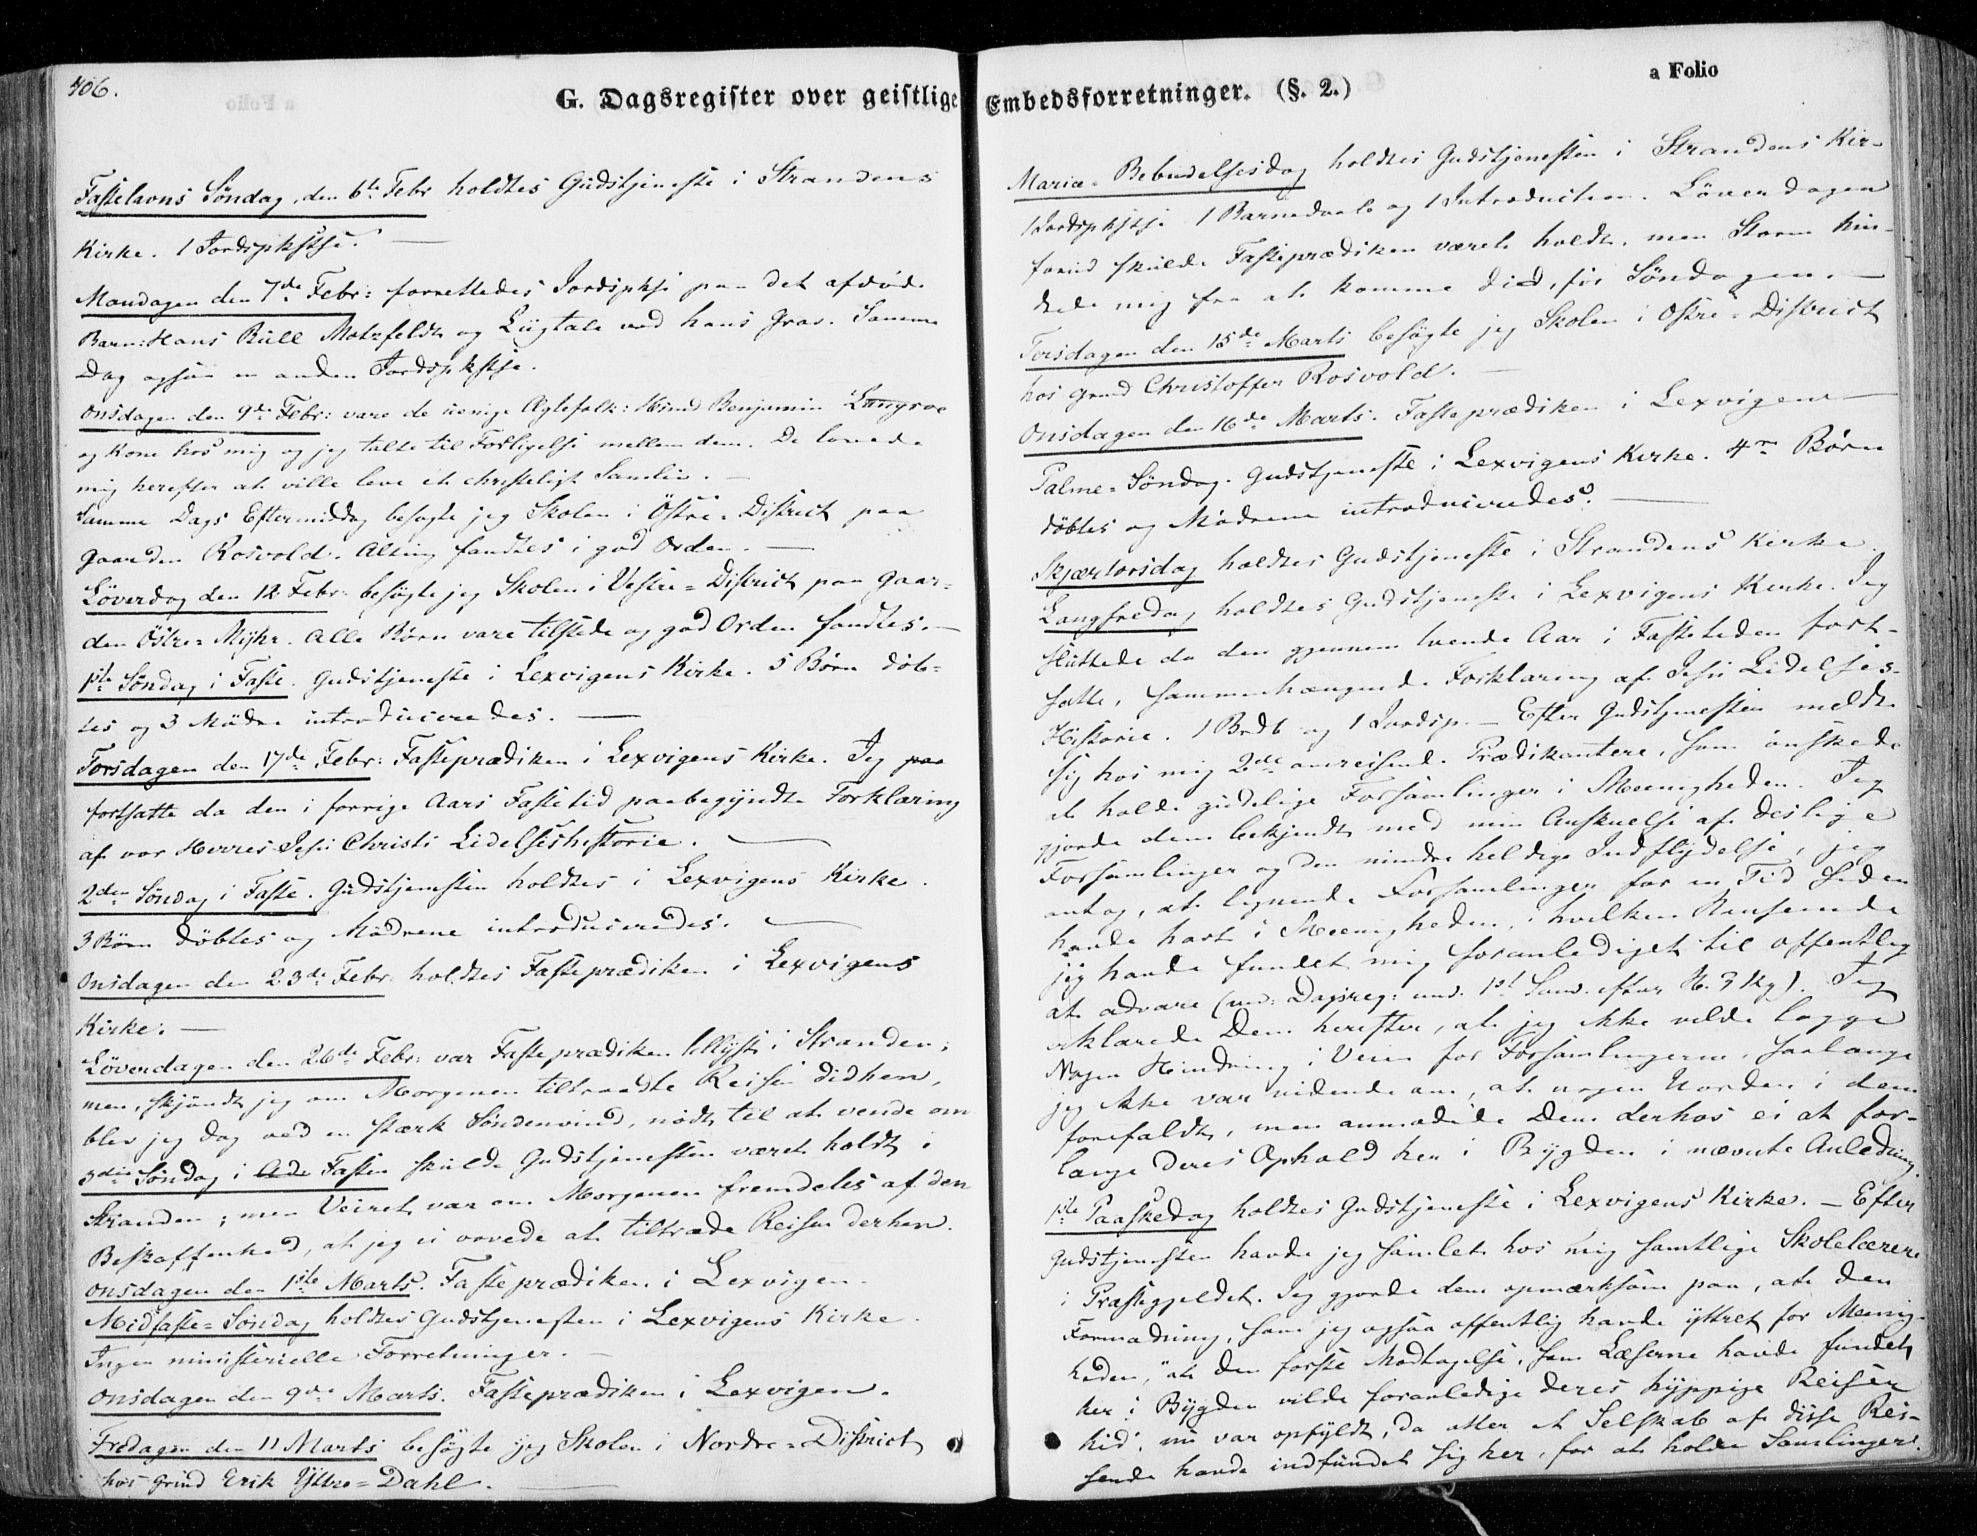 406.
G. Dagsregister over geistlige Embedsforretninger. (§. 2.)
a Folio
Fastelavns Søndag, den 6te Febr holdtes Gudstjeneste i Strandens
Kirke. 1 Jordspkstse. —
Mandagen den 7de Febr: forrettedes Jordspkse paa det afdøde
Barn: Hans Bull Motzfeldt og Liigtale ved hans Grav. Samme
Dag ogsaa en anden Jordspkstse.
Onsdagen den 9de Febr: vare de uenige Ægtefolk: Huusmd Benjamin
og Kone hos mig og jeg talte til Forligelse mellem dem. De lovede
mig herefter at ville leve et christeligt Samliv. —
Samme Dags Eftermiddag besøgte jeg Skolen i Østre-District paa
Gaarden Rosvold. Alting fandtes i god Orden. —
Løverdag den 12 Febr. besøgte jeg Skolen i Vestre-District paa Gaar-
den Østre-Myhr. Alle Børn vare tilstede og god Orden fandtes. —
1ste Søndag i Faste. Gudstjeneste i Lexvigens Kirke. 5 Børn døb-
tes og 3 Mødre introduceredes. —
Torsdagen den 17de Febr: Fasteprædiken i Lexvigens Kirke. Jeg paa
fortsatte da den i forrige Aars Fastetid paabegyndte Forklaring
af vor Herres Jesu Christi Lidelseshistorie. —
2den Søndag i Faste. Gudstjenesten holdtes i Lexvigens Kirke.
3 Børn døbtes og Mødrene introduceredes. —
Onsdagen den 23de Febr. holdtes Fasteprædiken i Lexvigens
Kirke. —
Løverdagen den 26de Febr: var Fasteprædiken tillyst i Stranden;
men, skjøndt jeg om Morgenen tiltraadte Reisen didhen,
blev jeg dog ved en stærk Søndenvind, nødt til at vende om
3die Søndag i Fasten skulde Gudstjenesten været holdt i
Stranden; men Veiret var om Morgenen fremdeles af den
Beskaffenhed, at jeg ei vovede at tiltræde Reisen derhen.
Onsdagen den 1ste Marts. Fasteprædiken i Lexvigen.
Midfaste-Søndag holdtes Gudstjenesten i Lexvigens Kirke.
Ingen ministerielle Forretninger. —
Onsdagen den 9de Marts. Fasteprædiken i Lexvigen.
Fredagen den 11 Marts besøgte jeg Skolen i Nordre-District
hos Grmd Erik Yttre-Dahl. —
Mariæ-Bebudelsesdag holdtes Gudstjenesten i Strandens Kir-
1 Jordspkstse 1 Barnedaab og 1 Introduction. Løverdagen
forud skulde Fasteprædiken været holdt, men Storm hin-
drede mig fra at komme did, før Søndagen. —
Tirsdagen den 15de Marts besøgte jeg Skolen i Østre-District
hos Grmd Christoffer Rosvold. —
Onsdagen den 16de Marts. Fasteprædiken i Lexvigen —
Palme-Søndag. Gudstjeneste i Lexvigens Kirke. 4re Børn
døbtes og Mødrene introduceredes. —
Skjærtorsdag holdtes Gudstjeneste i Strandens Kirke.
Langfredag holdtes Gudstjeneste i Lexvigens Kirke. Jeg
sluttede da den gjennem tvende Aar i Fastetiden fort-
satte, sammenhængende Forklaring af Jesu Lidelses-
Historie. 1 Brdb og 1 Jordsp. — Efter Gudstjenesten meldte
sig hos mig 2de omreisende Prædikantere, som ønskede
at holde gudelige Forsamlinger i Menigheden. Jeg
gjorde dem bekjendt med min Anskuelse af deslige
Forsamlinger og den mindre heldige Indflydelse, jeg
antog, at lignende Forsamlinger for en Tid siden
havde havt i Menigheden, i hvilken Henseende
jeg havde fundet mig foranlediget til offentlig
at advare (vid: Dagsreg: und. 1st Sønd. efter H. 3 Kg). Jeg
erklærede Dem herefter, at jeg ikke vilde lægge
Nogen Hindring i Veien for Forsamlingerne, saalænge
jeg ikke var vidende om, at nogen Uorden i dem
forefaldt, men anmodede Dem derhos ei at for-
længe Deres Ophold her i Bygden i nævnte Anledning.
1ste Paaskedag holdtes Gudstjeneste i Lexvigens Kirke. — Efter
Gudstjenesten havde jeg samlet hos mig samtlige Skolelærere
i Præstegjeldet. Jeg gjorde dem opmærksom paa, at den
Formodning, som jeg ogsaa offentlig havde yttret for Menig-
heden, "at den første Modtagelse, som Læserne havde fundet
her i Bygden vilde foranledige deres hyppige Reiser
hid", nu var opfyldt, da atter et Selskab af disse Rei-
sende havde indfundet sig her, for at holde Samlinger.